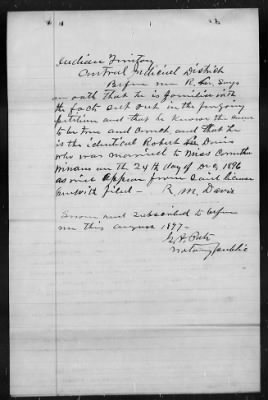 Indian Territory
Central Judicial District
Before me R. Lee says
on oath that he is familiar with
the facts set out in the foregoing
petition and that he knows the same
to be true and correct and that he
is the identical Robert Lee Davis
who was married to Miss
on the 24th day of Dec 1896
as will appear from said license
herewith filed - R. M. Davis
Sworn and subscribed to before
me this august 1897-
Notary public